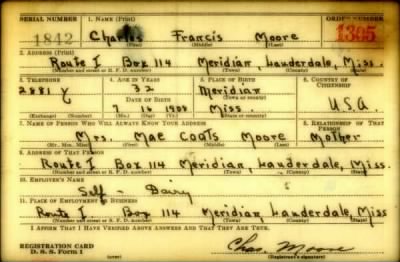 SERIAL NUMBER 1. NAME (Print) ORDER NUMBER
1842 Charles Francis Moore 1305
(First) (Middle) (Last)
2. ADDRESS (Print)
Route I Box 114 Meridian, Lauderdale, Miss.
(Number and street or R. F. D. number) (Town) (County) (State)
3. TELEPHONE 4. AGE IN YEARS 5. PLACE OF BIRTH 6. COUNTRY OF CITIZENSHIP
2881 Y 32 Meridian
DATE OF BIRTH (Town or county)
7 16 1908 Miss. U.S.A
(Exchange) (Number) (Mo.) (Day) (Yr.) (State or country)
7. NAME OF PERSON WHO WILL ALWAYS KNOW YOUR ADDRESS 8. RELATIONSHIP OF THAT PERSON
Mrs. Mae Coats Moore Mother
(Mr., Mrs., Miss) (First) (Middle) (Last)
9. ADDRESS OF THAT PERSON
Route I Box 114 Meridian, Lauderdale, Miss.
(Number and street or R. F. D. number) (Town) (County) (State)
10. EMPLOYER'S NAME
Self - Dairy
11. PLACE OF EMPLOYMENT OR BUSINESS
Route I. Box 114 Meridian, Lauderdale, Miss
(Number and street or R. F. D. number) (Town) (County) (State)
I AFFIRM THAT I HAVE VERIFIED ABOVE ANSWERS AND THAT THEY ARE TRUE.
REGISTRATION CARD
D. S. S. Form 1
(over)
Chas. Moore
(Registrant's signature)